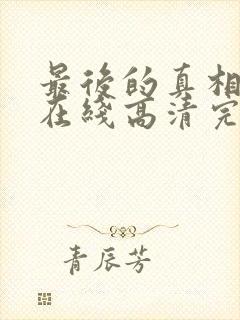 最後的真相
在綫高清完
青辰芳